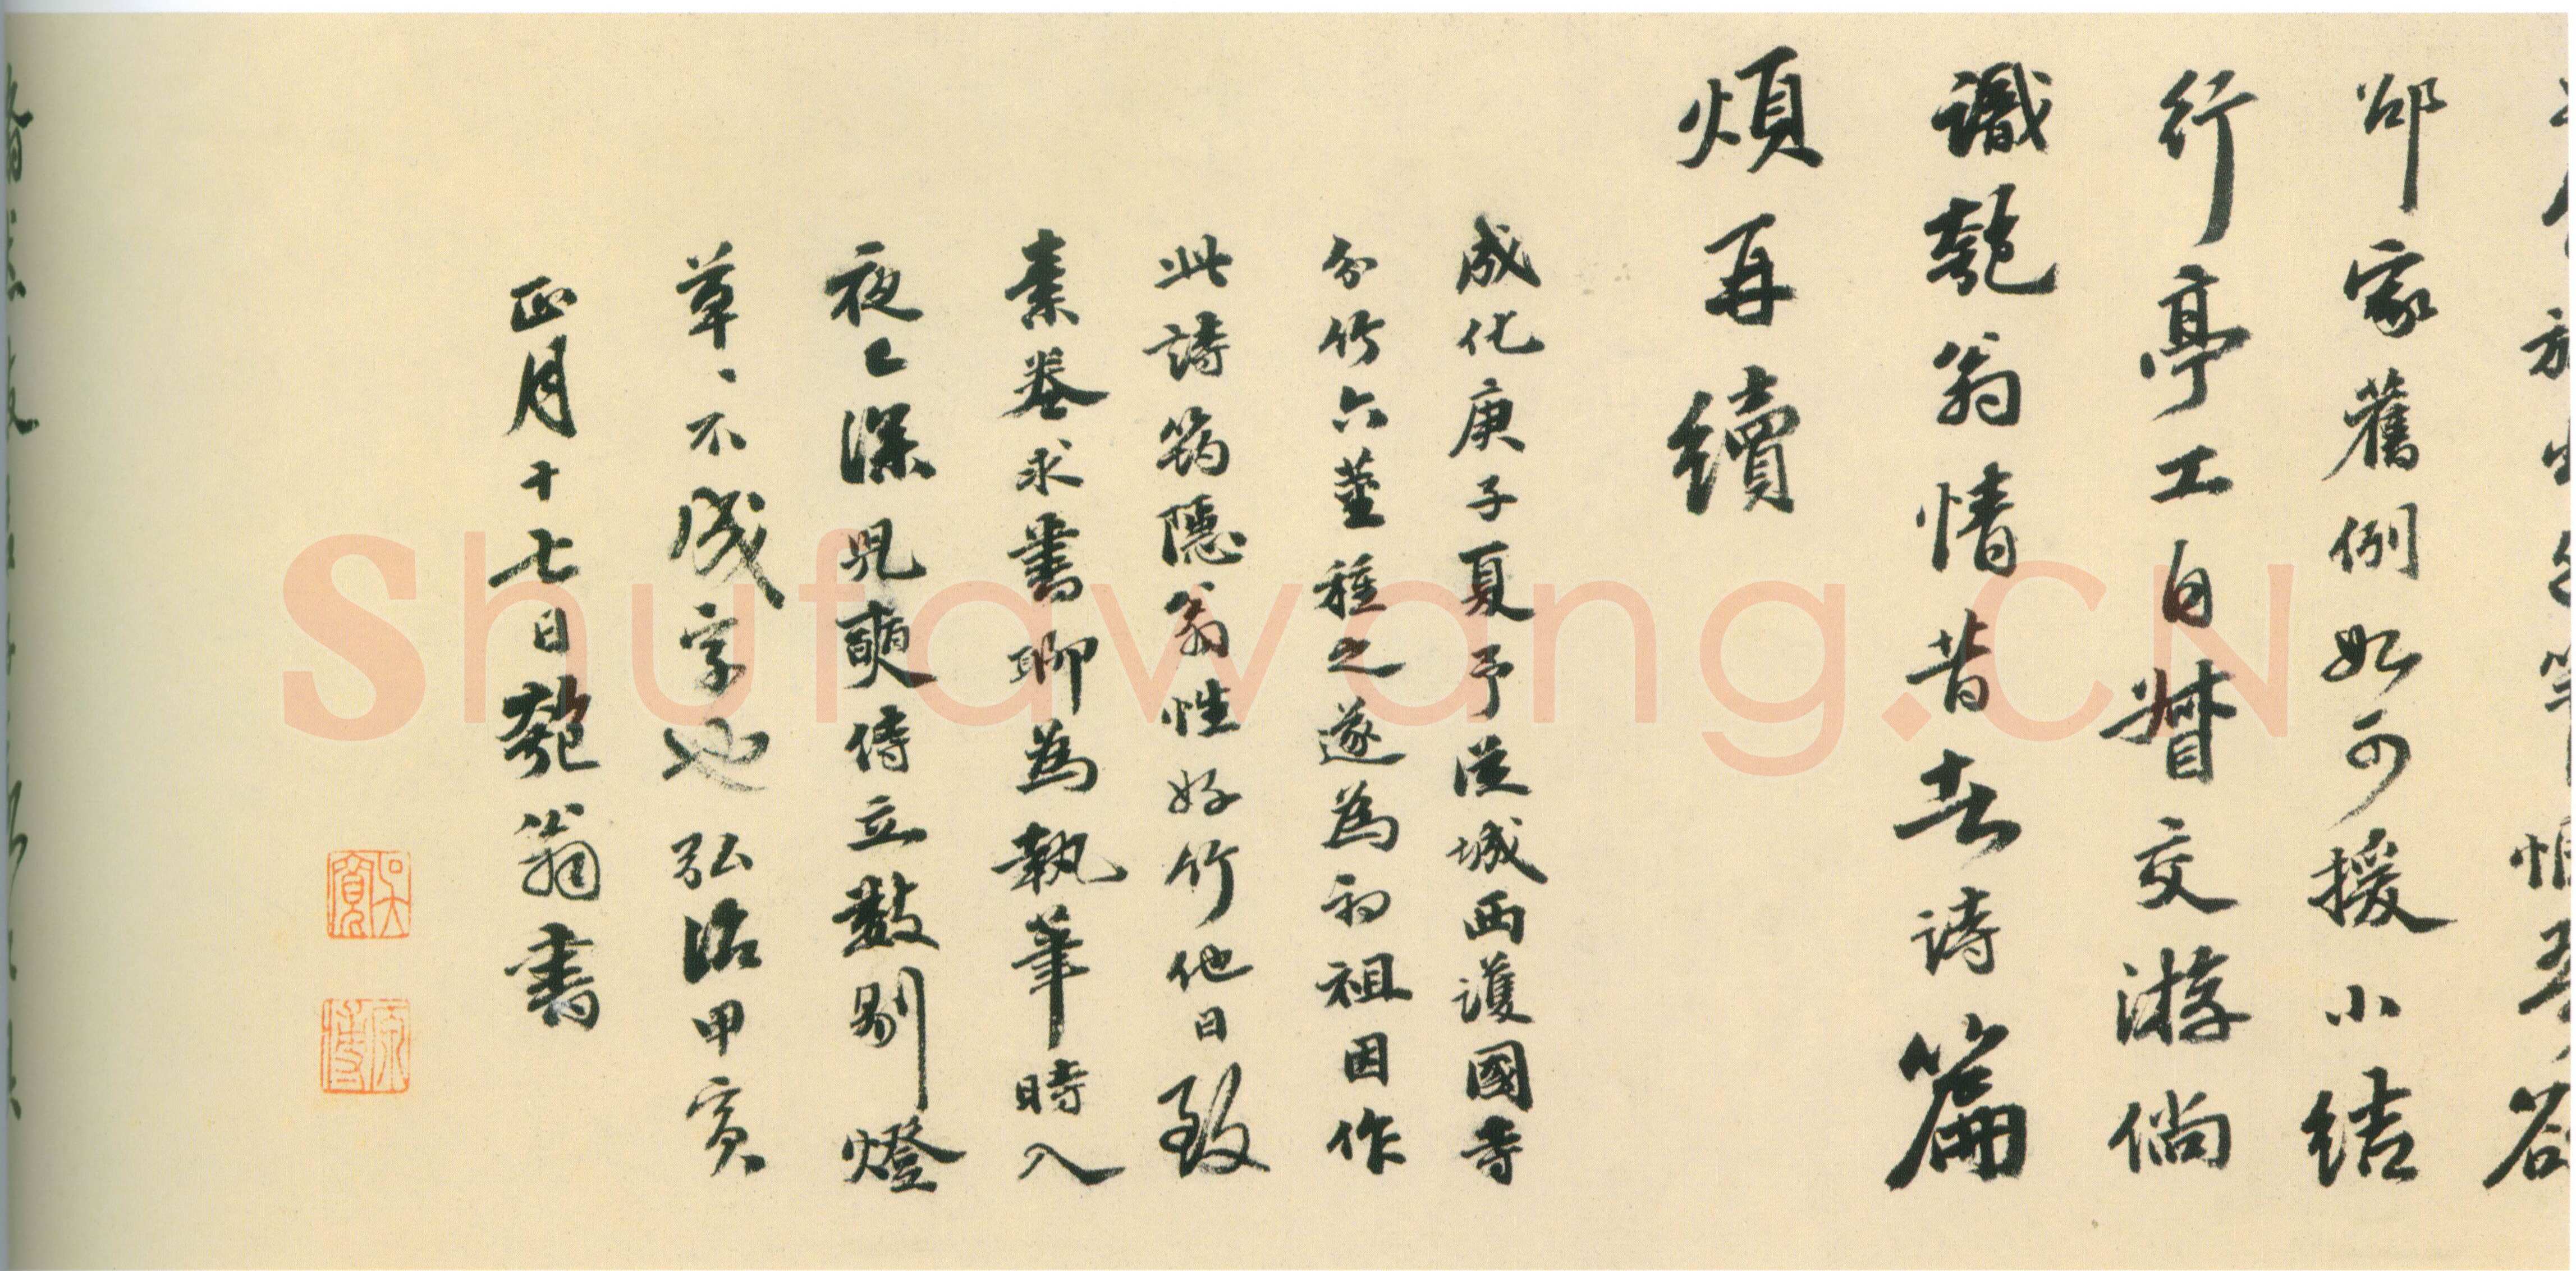 邵家舊例如可援小結
行亭工自督交游倘
識匏翁情昔春詩篇
煩再續
成化庚子夏予從城西護國寺
分竹六莖種之遂為初祖因作
此詩筠隱翁性好竹他日致
素卷求書聊為執筆時入
夜已深兒奭侍立數剔燈
草〻不成字也弘治甲寅
正月十七日匏翁書
吳寬
原博
Shufawang.CN